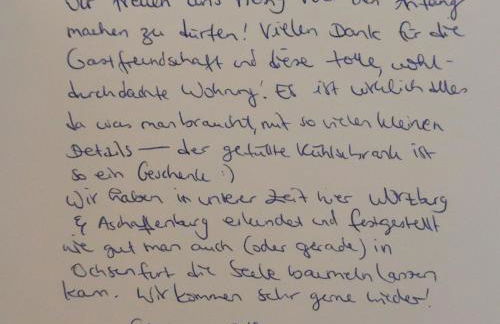 Wir freuen uns riesig von den Anfang
machen zu dürfen! Vielen Dank für die
Gastfreundschaft und diese tolle, wohl-
durchdachte Wohnung! Es ist wirklich alles
da was man braucht, mit so vielen kleinen
Details — der gefüllte Kühlschrank ist
so ein Geschenk :)
Wir haben in unserer Zeit hier Würzburg
& Aschaffenburg erkundet und festgestellt
wie gut man auch (oder gerade) in
Ochsenfurt die Seele baumeln lassen
kann. Wir kommen sehr gerne wieder!